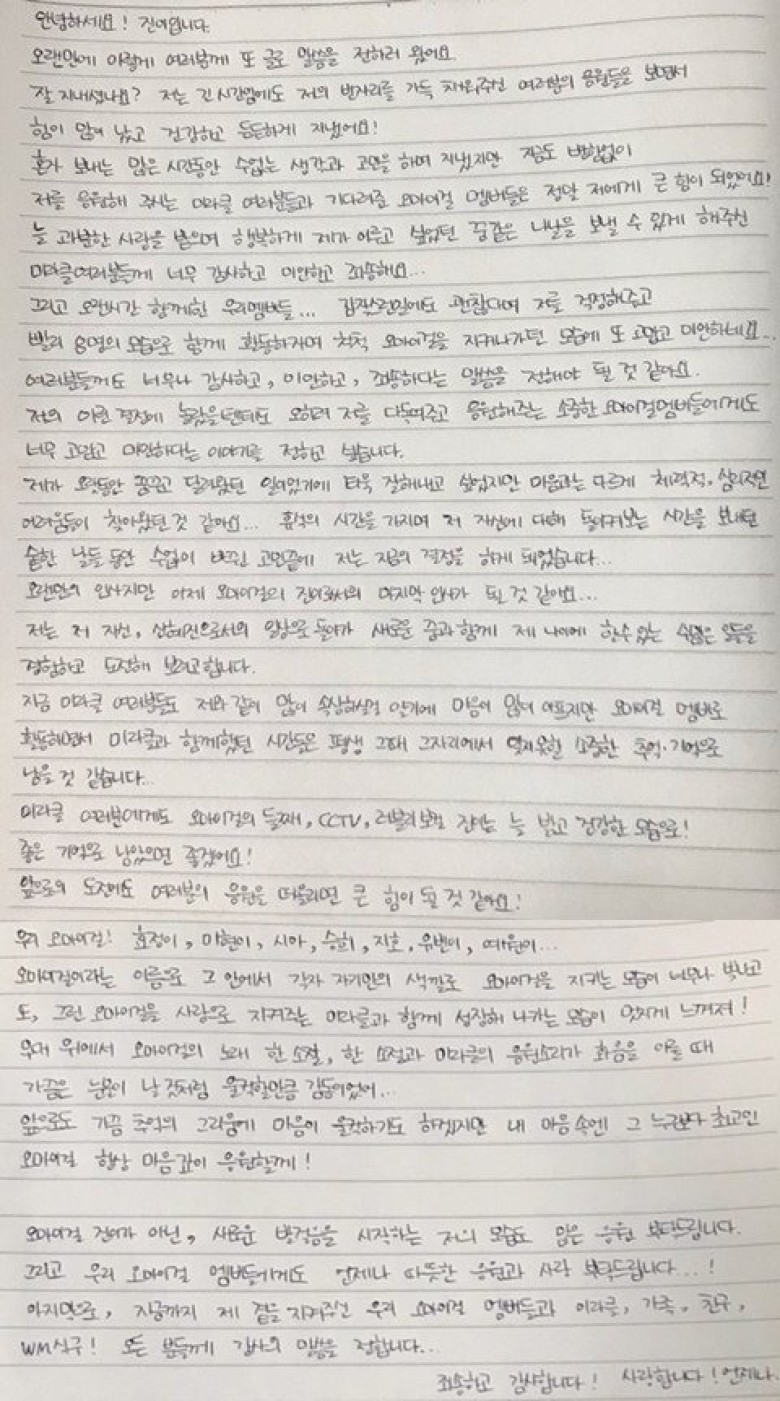 안녕하세요! 진이입니다.
오랜만에 이렇게 여러분께 또 글로 말씀을 전하러 왔어요.
잘 지내셨나요? 저는 긴 시간임에도 저의 빈자리를 가득 채워주신 여러분의 응원들을 보면서
힘이 많이 났고 건강하고 든든하게 지냈어요!
혼자 보내는 많은 시간동안 수없는 생각과 고민을 하며 지냈지만 지금도 변함없이
저를 응원해 주시는 미라클 여러분들과 기다려준 오마이걸 멤버들은 정말 저에게 큰 힘이 되었어요!
늘 과분한 사랑을 받으며 행복하게 제가 이루고 싶었던 꿈같은 나날을 보낼 수 있게 해주신
미라클여러분들께 너무 감사하고 미안하고 죄송해요...
그리고 오랜시간 함께한 우리멤버들... 갑작스런일에도 괜찮다며 저를 걱정해주고
빨리 8명의 모습으로 함께 활동하자며 척척 오마이걸을 지켜나가던 모습에 또 고맙고 미안하네요...
여러분들께도 너무나 감사하고, 미안하고, 죄송하다는 말씀을 전해야 될 것 같아요.
저의 이런 결정에 놀랐을텐데도 오히려 저를 다독여주고 응원해주는 소중한 오마이걸멤버들에게도
너무 고맙고 미안하다는 이야기를 전하고 싶습니다.
제가 오랫동안 꿈꾸고 달려왔던 일이었기에 더욱 잘해내고 싶었지만 마음과는 다르게 체력적, 심리적인
어려움들이 찾아왔던 것 같아요... 휴식의 시간을 가지며 저 자신에 대해 돌아보는 시간을 보내던
숱한 날들 동안 수없이 바뀐 고민끝에 저는 지금의 결정을 하게 되었습니다...
오랜만의 인사지만 이제 오마이걸의 진이로서의 마지막 인사가 될 것 같아요...
저는 저 자신, 신혜진으로서의 일상으로 돌아가 새로운 꿈과함께 제 나이에 할수있는 일들을
경험하고 도전해 보려고합니다.
지금 미라클 여러분들도 저와 같이 많이 속상하실걸 알기에 마음이 많이 아프지만 오마이걸 멤버로
활동하면서 미라클과 함께했던 시간들은 평생 그때 그자리에서 잊지못할 소중한 추억·기억으로
남을 것 같습니다...
미라클 여러분에게도 오마이걸의 둘째, CCTV, 러블리보컬 진이는 늘 밝고 건강한 모습으로!
좋은 기억으로 남았으면 좋겠어요!
앞으로의 도전에도 여러분의 응원을 떠올리면 큰 힘이 될 것 같아요!
우리 오마이걸! 효정이, 미현이, 시아, 승희, 지호, 유빈이,
오마이걸이라는 이름으로 그 안에서 각자 자기만의 색깔로 오마이걸을 지키는 모습이 너무나 빛나고
또, 그런 오마이걸을 사랑으로 지켜주는 미라클과 함께 성장해 나가는 모습이 멋지게 느껴져!
무대 위에서 오마이걸의 노래 한 소절, 한 소절과 미라클의 응원소리가 화음을 이룰 때
가끔은 눈물이 날것처럼 울컥할만큼 감동이었어...
앞으로도 가끔 추억의 그리움에 마음이 울컥하기도 하겠지만 내 마음속엔 그 누구보다 최고인
오마이걸 항상 마음깊이 응원할게!
오마이걸 진이가 아닌, 새로운 발걸음을 시작하는 저의 모습도 많은 응원 부탁드립니다.
그리고 우리 오마이걸 멤버들에게도 언제나 따뜻한 응원과 사랑 부탁드립니다...!
마지막으로, 지금까지 제 곁을 지켜주신 우리 오마이걸 멤버들과 미라클, 가족, 친구,
WM식구! 모든 분들께 감사의 말씀을 전합니다...
죄송하고 감사합니다! 사랑합니다! 언제나.